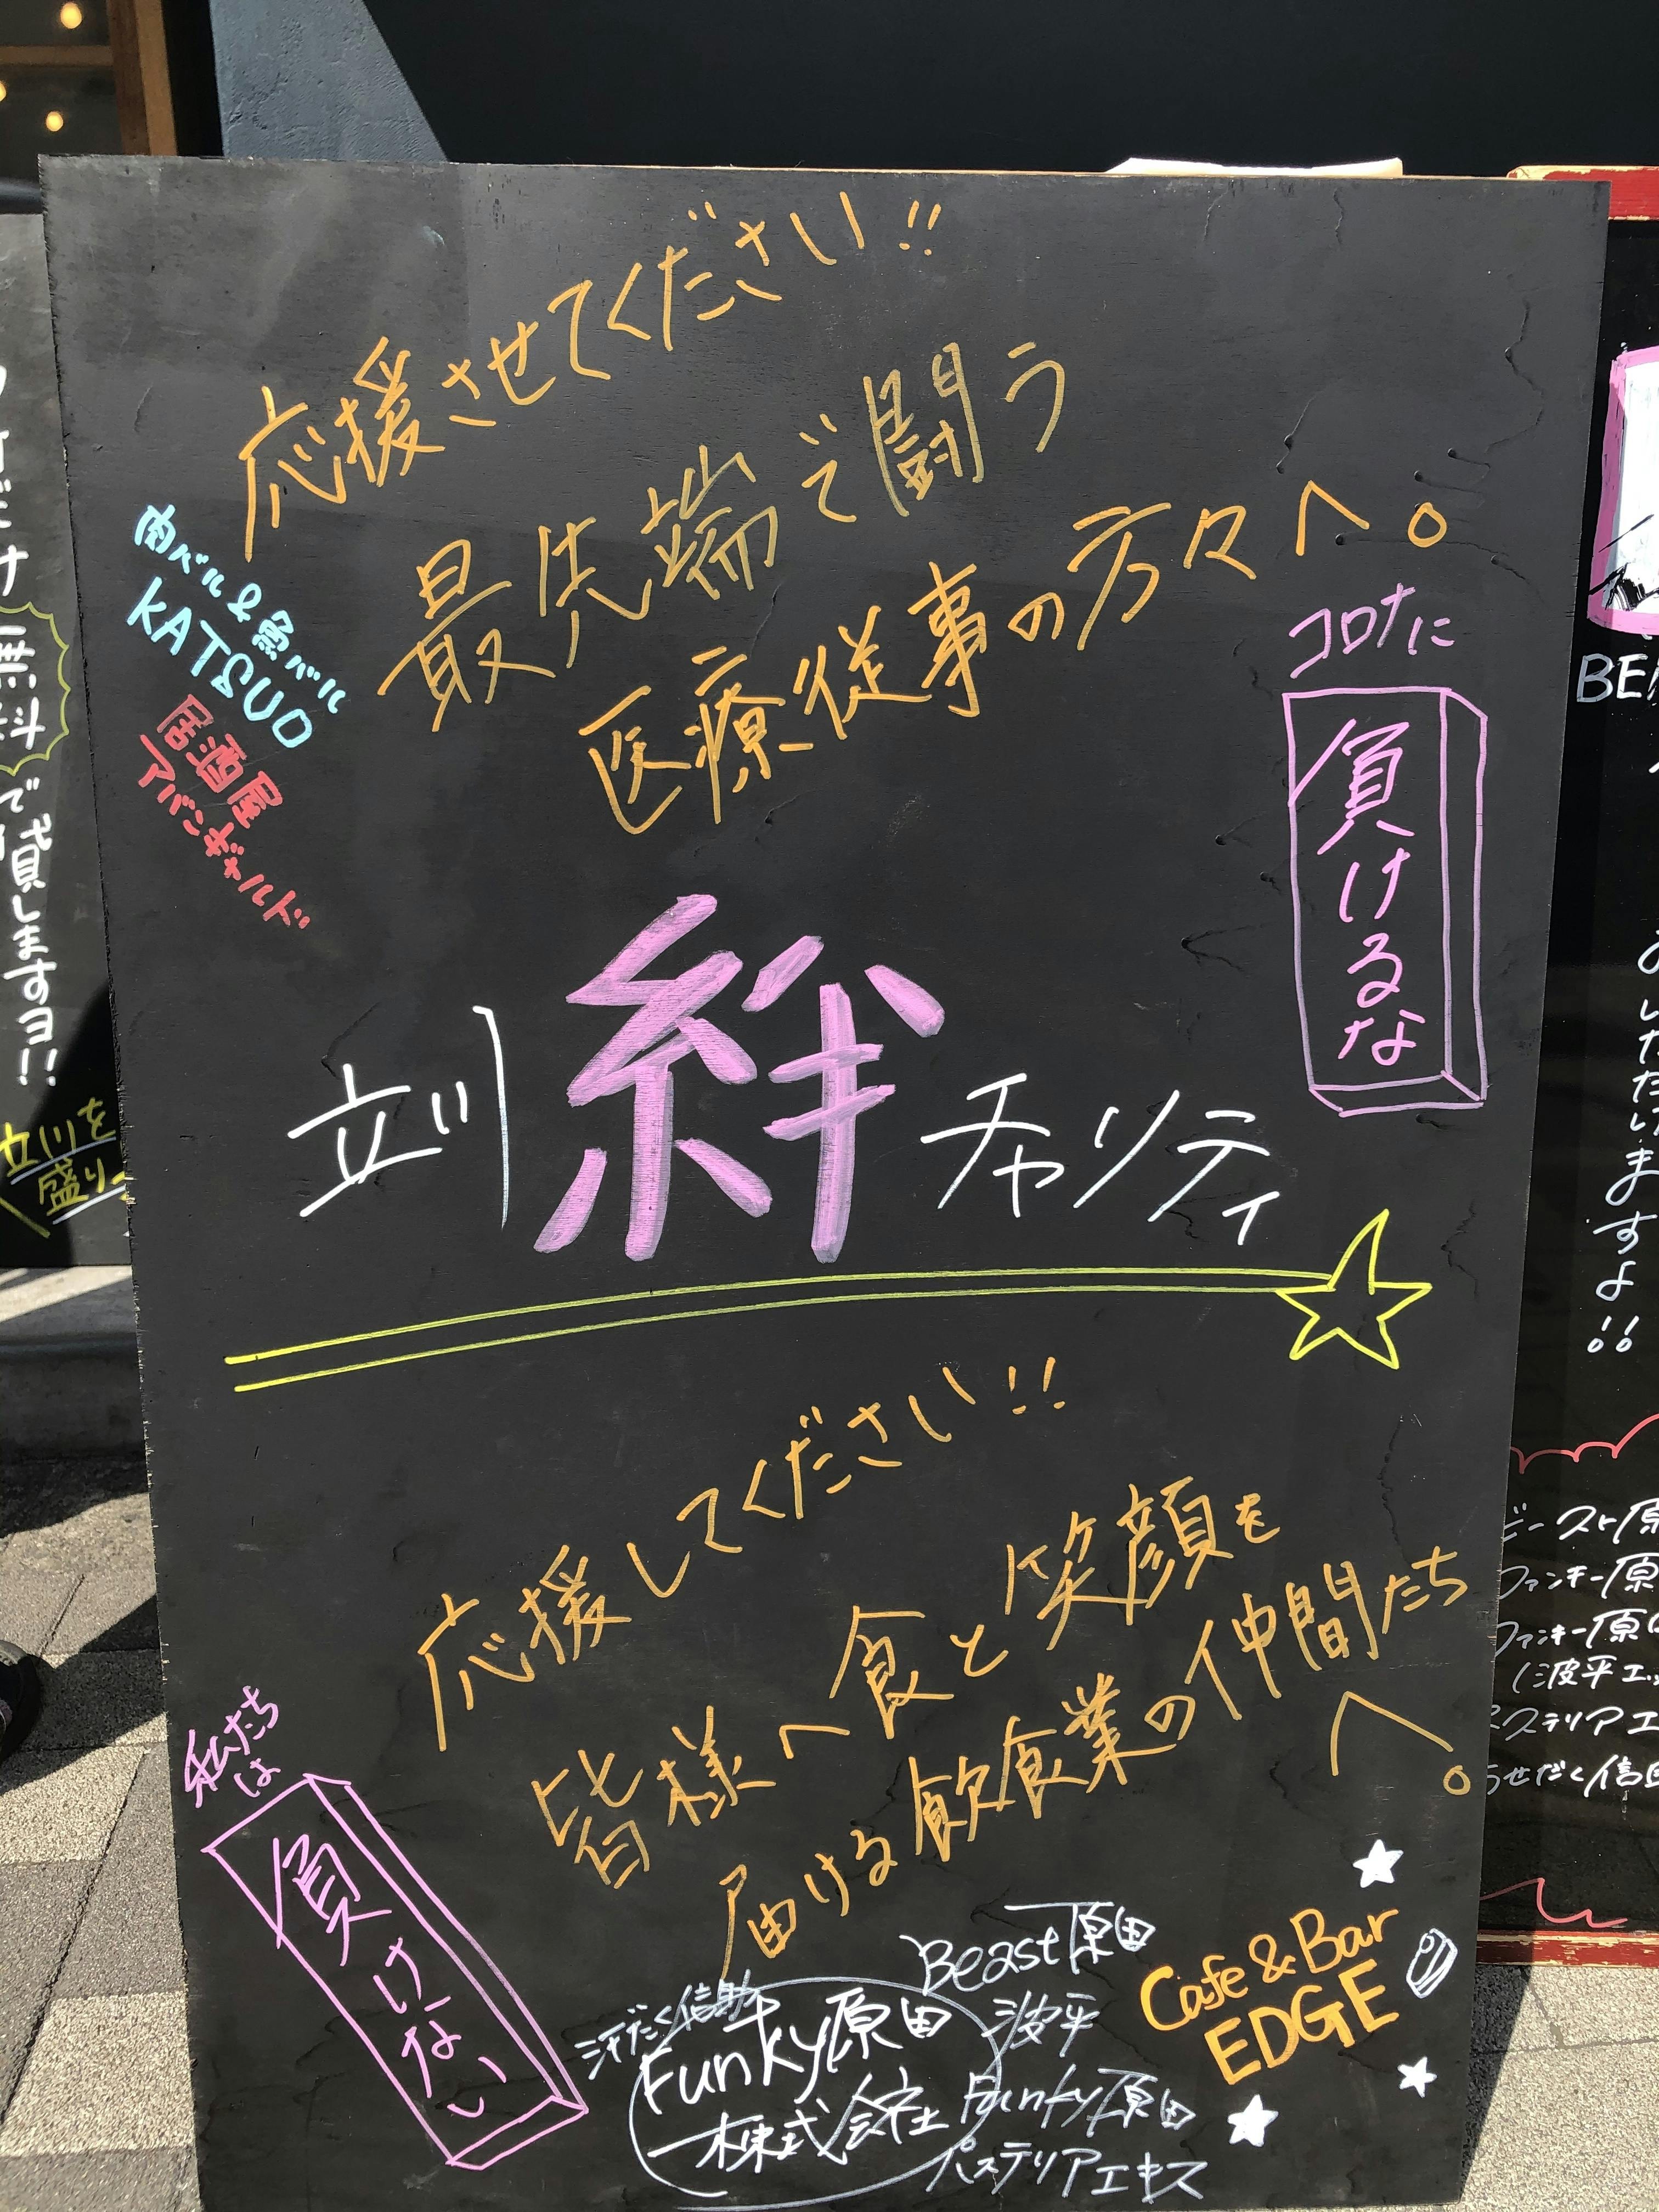 応援させてください!!
最先端で闘う
医療従事の方々へ。
肉バル&魚バル
KATSUO
居酒屋
アバンギャルド
コロナに
負けるな
立川 絆 チャリティ
応援してください!!
皆様へ食と笑顔を
届ける飲食業の仲間たち
へ。
私たち
は
負けない
Beast原田
波平
Funky原田
株式会社
Funky原田
Cafe & Bar
EDGE
無料
で貸しますヨ!!
立川を
盛り
BE
いただけますよ!!
ビースト原
ファンキー原
ファンキー原田
(波平エ
ステリアエ
せだく信